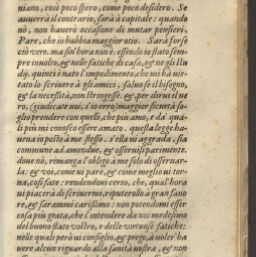 niano, così poco spero, come poco desidero. Se
auuerrà il contrario, sarà à capitale: quando
nò, non hauerò occasione di mutar pensieri.
Pare, che io habbia maggior otio. Sarà forse
ciò uero. ma fin'hora non è. essendo io stato sem-
pre inuolto, & nelle fatiche di casa, & ne gli stu
dij. quinci è nato l'impedimento, che mi hà uie-
tato lo scriuere à gli amici. saluo se il bisogno,
& la necessità, non stringesse. & per dirui il ue
ro, (giudicate uoi, s'io erro) maggior sicurtà so-
glio prendere con quelli, che più amo, e dà' qua-
li più mi conosco essere amato. questa legge ha-
ueua io posto à me stesso. s'ella ui aggrada, sia
commune ad amendue, & osseruisi parimente.
doue nò, rimanga l'obligo à me solo di osseruar-
la: & uoi, come ui pare, & come meglio ui tor-
na, così fate: rendendoui certo, che, qual'hora
ui piacerà di scriuermi, riputerollo à gran fauo
re, & sarammi carissimo: non potendomi esser
cosa più grata, che l'intendere da uoi medesimo
del buono stato uostro, e delle uirtuose fatiche:
nelle quali però ui consiglio, & prego, à uoler ha
uere alcun riguardo alla sanità uostra, & non